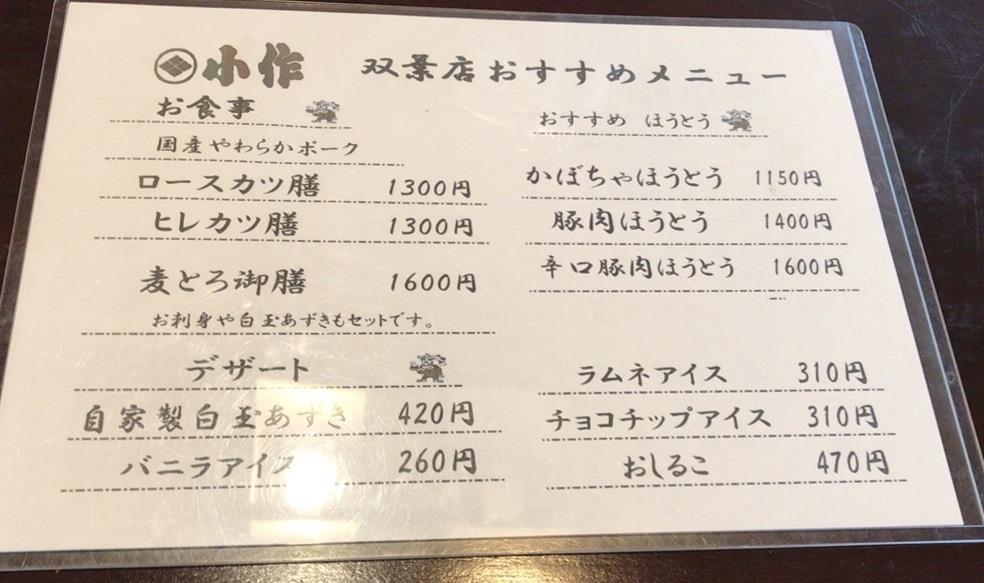 小作 双葉店おすすめメニュー
お食事
国産やわらかポーク
ロースカツ膳 1300円
ヒレカツ膳 1300円
麦とろ御膳 1600円
お刺身や白玉あずきもセットです。
おすすめ ほうとう
かぼちゃほうとう 1150円
豚肉ほうとう 1400円
辛口豚肉ほうとう 1600円
デザート
自家製白玉あずき 420円
バニラアイス 260円
ラムネアイス 310円
チョコチップアイス 310円
おしるこ 470円